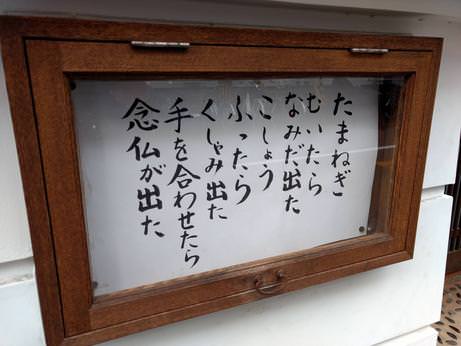 たまねぎ
むいたら
なみだ出た
こしょう
ふったら
くしゃみ出た
手を合わせたら
念仏が出た